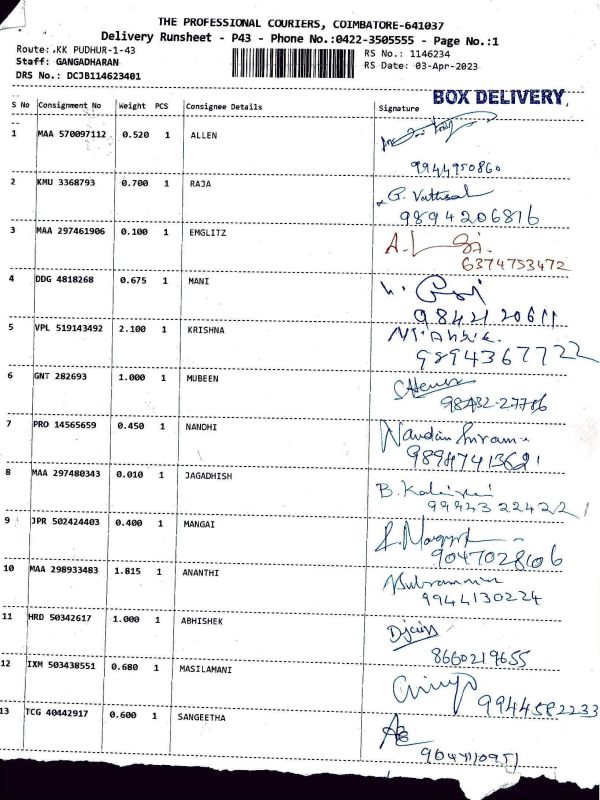 THE PROFESSIONAL COURIERS, COIMBATORE-641037
Delivery Runsheet - P43 - Phone No.:0422-3505555 - Page No.:1
Route:.KK PUDHUR-1-43 RS No.: 1146234
Staff: GANGADHARAN RS Date: 03-Apr-2023
DRS No.: DCJB114623401
BOX DELIVERY
S No Consignment No Weight PCS Consignee Details Signature
1 MAA 570097112 0.520 1 ALLEN
9944950860
2 KMU 3368793 0.700 1 RAJA G. Vathsal
9894206816
3 MAA 297461906 0.100 1 EMGLITZ
6374753472
4 DDG 4818268 0.675 1 MANI
9842120611
5 VPL 519143492 2.100 1 KRISHNA
9894367722
6 GNT 282693 1.000 1 MUBEEN
98432-27786
7 PRO 14565659 0.450 1 NANDHI
8 MAA 297480343 0.010 1 JAGADHISH B.
9994322422
9 JPR 502424403 0.400 1 MANGAI
9047028106
10 MAA 298933483 1.815 1 ANANTHI
9944130224
11 HRD 50342617 1.000 1 ABHISHEK
8660219655
12 IXM 503438551 0.680 1 MASILAMANI
9944582233
13 TCG 40442917 0.600 1 SANGEETHA